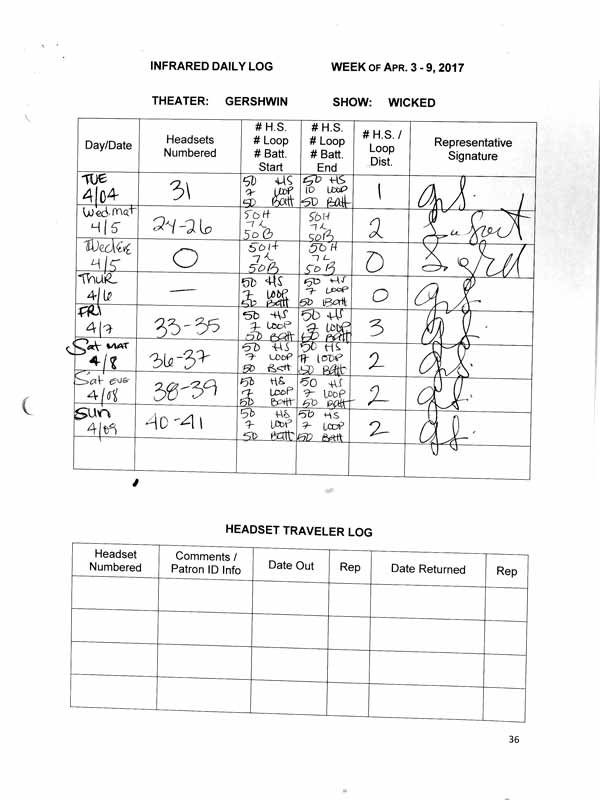 INFRARED DAILY LOG WEEK OF APR. 3 - 9, 2017
THEATER: GERSHWIN SHOW: WICKED
Day/Date Headsets Numbered # H.S. # Loop # Batt. Start # H.S. # Loop # Batt. End # H.S. / Loop Dist. Representative Signature
TUE 4/04 31 50 HS 7 LOOP 50 Batt 50 HS 10 LOOP 50 Batt 1
Wed.mat 4/5 24-26 50H 7L 50B 50H 7L 50B 2
Wed EVE 4/5 0 50H 7L 50B 50H 7L 50B 0
THUR 4/6 — 50 HS 7 LOOP 50 Batt 50 HS 7 LOOP 50 Batt 0
FRI 4/7 33-35 50 HS 7 LOOP 50 Batt 50 HS 7 LOOP 50 Batt 3
Sat MAT 4/8 36-37 50 HS 7 LOOP 50 Batt 50 HS 7 LOOP 50 Batt 2
Sat EVE 4/08 38-39 50 HS 7 LOOP 50 Batt 50 HS 7 LOOP 50 Batt 2
SUN 4/09 40-41 50 HS 7 LOOP 50 Batt 50 HS 7 LOOP 50 Batt 2
HEADSET TRAVELER LOG
Headset Numbered Comments / Patron ID Info Date Out Rep Date Returned Rep
36